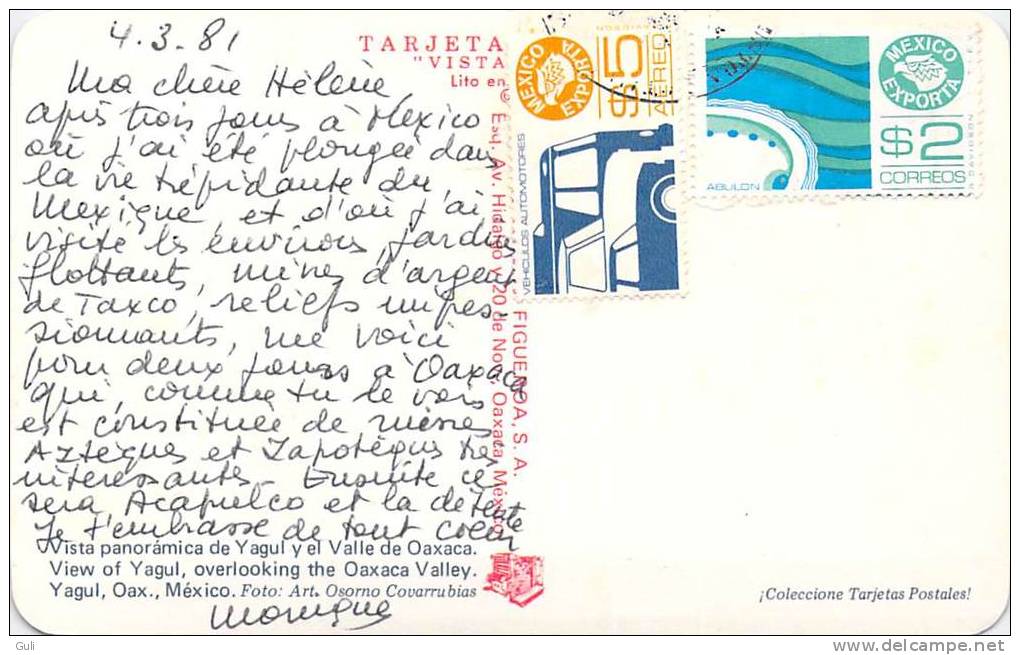 4.3.81
Ma chère Hélène,
après trois jours à Mexico
où j'ai été plongée dans
la vie trépidante du
Mexique, et d'où j'ai
visité les environs, jardins
flottants, mines d'argent
de Taxco, reliefs impres-
sionnants, me voici
pour deux jours à Oaxaca
qui, comme tu le vois
est constituée de ruines
Aztèques et Zapotèques très
intéressantes - Ensuite ce
sera Acapulco et la détente
Je t'embrasse de tout coeur
Monique
Vista panorámica de Yagul y el Valle de Oaxaca.
View of Yagul, overlooking the Oaxaca Valley.
Yagul, Oax., México. Foto: Art. Osorno Covarrubias
TARJETA
"VISTA
Lito en
©
FIGUEROA, S. A.
Esq. Av. Hidalgo y 20 de Nov., Oaxaca, México
MEXICO EXPORTA
$5
AEREO
VEHICULOS AUTOMOTORES
MEXICO EXPORTA
$2
CORREOS
ABULON
R. DAVIDSON
¡Coleccione Tarjetas Postales!
Guli
www.delcampe.net